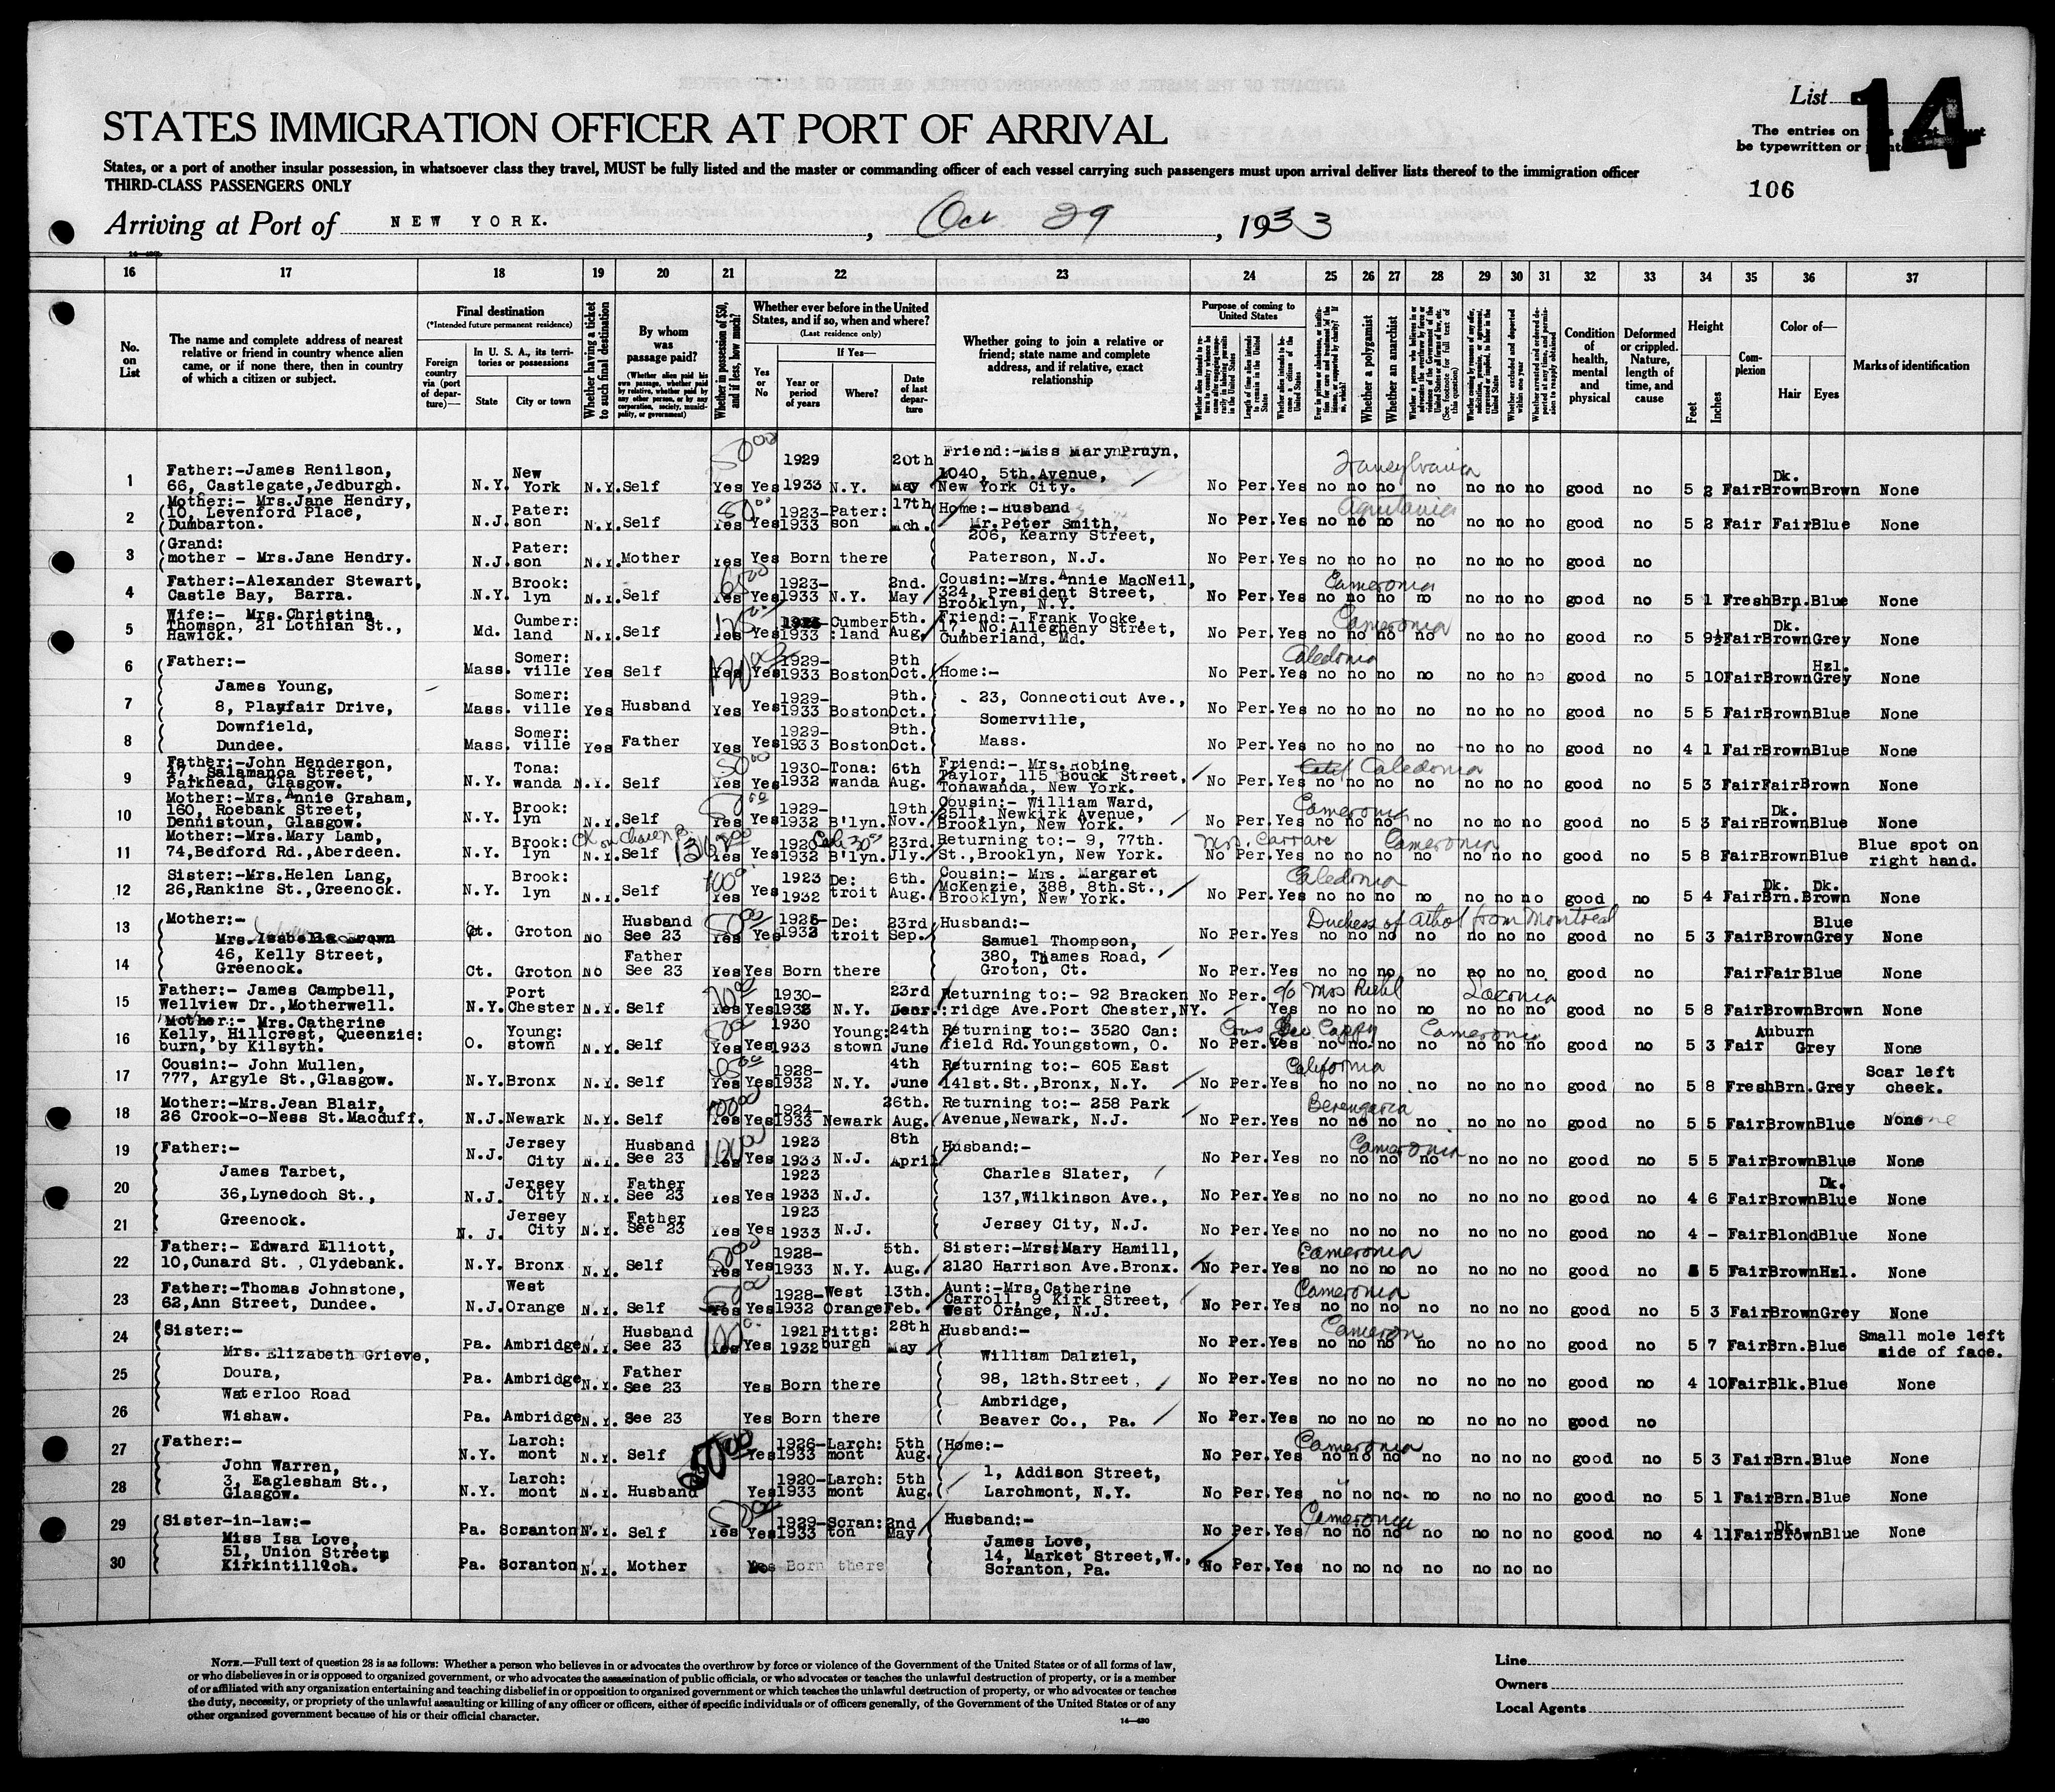 List 14
STATES IMMIGRATION OFFICER AT PORT OF ARRIVAL
The entries on
be typewritten or
States, or a port of another insular possession, in whatsoever class they travel, MUST be fully listed and the master or commanding officer of each vessel carrying such passengers must upon arrival deliver lists thereof to the immigration officer
THIRD-CLASS PASSENGERS ONLY
106
Arriving at Port of NEW YORK. , Oct 29 , 1933
16 17 18 19 20 21 22 23 24 25 26 27 28 29 30 31 32 33 34 35 36 37
No. on List
The name and complete address of nearest relative or friend in country whence alien came, or if none there, then in country of which a citizen or subject.
Final destination
(*Intended future permanent residence)
Foreign country via (port of departure)—
In U. S. A., its territories or possessions
State City or town
Whether having a ticket to such final destination
By whom was passage paid?
(Whether alien paid his own passage, whether paid by relative, whether paid by any other person, or by any corporation, society, municipality, or government)
Whether in possession of $50, and if less, how much?
Whether ever before in the United States, and if so, when and where?
(Last residence only)
Yes or No
If Yes—
Year or period of years Where? Date of last departure
Whether going to join a relative or friend; state name and complete address, and if relative, exact relationship
Purpose of coming to United States
Length of time alien intends to remain in the United States
Whether alien intends to become a citizen of the United States
Whether a polygamist
Whether an anarchist
Whether excluded and deported within one year
Condition of health, mental and physical
Deformed or crippled. Nature, length of time, and cause
Height
Feet Inches
Complexion
Color of—
Hair Eyes
Marks of identification
1 Father:-James Renilson, 66, Castlegate,Jedburgh. N.Y. New York N.Y. Self 5000 Yes Yes 1929 1933 N.Y. 20th May Friend:-Miss Mary Pruyn, 1040, 5th.Avenue, New York City. Transylvania No Per. Yes no no no no no no no good no 5 2 Fair Dk. Brown Brown None
2 Mother:- Mrs.Jane Hendry, 10, Levenford Place, Dumbarton. N.J. Pater: son N.Y. Self 5000 Yes Yes 1923- 1933 Pater: son 17th Mch. Home:- Husband Mr.Peter Smith, 206, Kearny Street, Aquitania No Per. Yes no no no no no no no good no 5 2 Fair Fair Blue None
3 Grand: mother - Mrs.Jane Hendry. N.J. Pater: son N.Y. Mother Yes Yes Born there Paterson, N.J. No Per. Yes no no no no no no no good no
4 Father:-Alexander Stewart, Castle Bay, Barra. N.Y. Brook: lyn N.Y. Self Yes Yes 1923- 1933 N.Y. 2nd. May Cousin:-Mrs.Annie MacNeil, 324, President Street, Brooklyn, N.Y. Cameronia No Per. Yes no no no no no no no good no 5 1 Fresh Brn. Blue None
5 Wife:- Mrs.Christina Thomson, 21 Lothian St., Hawick. Md. Cumber: land N.Y. Self Yes Yes 1933 Cumber :land 5th. Aug. Friend:- Frank Vocke, 17, No.Allegheny Street, Cumberland, Md. Cameronia No Per. Yes no no no no no no no good no 5 9½ Fair Dk. Brown Grey None
6 Father:- Mass. Somer: ville Yes Self Yes Yes 1929- 1933 Boston 9th Oct. Home:- Caledonia No Per. Yes no no no no no no no good no 5 10 Fair Brown Hzl. Grey None
7 James Young, 8, Playfair Drive, Mass. Somer: ville Yes Husband Yes Yes 1929- 1933 Boston 9th. Oct. 23, Connecticut Ave., No Per. Yes no no no no no no no good no 5 5 Fair Brown Blue None
8 Downfield, Dundee. Mass. Somer: ville Yes Father Yes Yes 1929- 1933 Boston 9th. Oct. Somerville, Mass. No Per. Yes no no no no no no no good no 4 1 Fair Brown Blue None
9 Father:-John Henderson, 47, Salamanca Street, Parkhead, Glasgow. N.Y. Tona: wanda N.Y. Self 5000 Yes Yes 1930- 1932 Tona: wanda 6th Aug. Friend:- Mrs.Robine Taylor, 115 Bouck Street, Tonawanda, New York. Caledonia No Per. Yes no no no no no no no good no 5 3 Fair Fair Brown None
10 Mother:-Mrs.Annie Graham, 160, Roebank Street, Dennistoun, Glasgow. N.Y. Brook: lyn N.Y. Self Yes Yes 1929- 1932 B'lyn. 19th Nov. Cousin:- William Ward, 2511, Newkirk Avenue, Brooklyn, New York. Cameronia No Per. Yes no no no no no no no good no 5 3 Fair Dk. Brown Blue None
11 Mother:-Mrs.Mary Lamb, 74,Bedford Rd.,Aberdeen. N.Y. Brook: lyn N.Y. Self Yes Yes 1920 1932 B'lyn. 23rd. Jly. Returning to:- 9, 77th. St.,Brooklyn, New York. Mrs. Carrare Cameronia No Per. Yes no no no no no no no good no 5 8 Fair Brown Blue Blue spot on right hand.
12 Sister:-Mrs.Helen Lang, 26,Rankine St.,Greenock. N.Y. Brook: lyn N.Y. Self Yes Yes 1923 1932 De: troit 6th. Aug. Cousin:- Mrs. Margaret McKenzie, 388, 8th.St., Brooklyn, New York. Caledonia No Per. Yes no no no no no no no good no 5 4 Fair Dk. Brn. Dk. Brown None
13 Mother:- Mrs.Isabella Brown Ct. Groton No Husband See 23 5000 Yes Yes 1932 De: troit 23rd Sep. Husband:- Samuel Thompson, Duchess of Athol from Montreal No Per. Yes no no no no no no no good no 5 3 Fair Brown Blue Grey None
14 46, Kelly Street, Greenock. Ct. Groton No Father See 23 Yes Yes Born there 380, Thames Road, Groton, Ct. No Per. Yes no no no no no no no good no Fair Fair Blue None
15 Father:- James Campbell, Wellview Dr.,Motherwell. N.Y. Port Chester N.Y. Self Yes Yes 1930- N.Y. 23rd Returning to:- 92 Bracken :ridge Ave.Port Chester,NY. c/o Mrs Riehl Laconia No Per. Yes no no no no no no no good no 5 8 Fair Brown Brown None
16 Mother:- Mrs.Catherine Kelly, Hillcrest, Queenzie: burn, by Kilsyth. O. Young: stown N.Y. Self Yes Yes 1930 1933 Young: stown 24th June Returning to:- 3520 Can: field Rd.Youngstown, O. Cameronia No Per. Yes no no no no no no no good no 5 3 Fair Auburn Grey None
17 Cousin:- John Mullen, 777, Argyle St.,Glasgow. N.Y. Bronx N.Y. Self Yes Yes 1928- 1932 N.Y. 4th June Returning to:- 605 East 141st.St.,Bronx, N.Y. California No Per. Yes no no no no no no no good no 5 8 Fresh Brn. Grey Scar left cheek.
18 Mother:-Mrs.Jean Blair, 26 Crook-o-Ness St.Macduff. N.J. Newark N.Y. Self Yes Yes 1924- 1933 Newark 26th. Aug. Returning to:- 258 Park Avenue,Newark, N.J. Berengaria No Per. Yes no no no no no no no good no 5 5 Fair Brown Blue None
19 Father:- N.J. Jersey City N.Y. Husband See 23 Yes Yes 1923 1933 N.J. 8th April Husband:- Cameronia No Per. Yes no no no no no no no good no 5 5 Fair Brown Blue None
20 James Tarbet, 36,Lynedoch St., N.J. Jersey City N.Y. Father See 23 Yes Yes 1923 1933 N.J. Charles Slater, 137,Wilkinson Ave., No Per. Yes no no no no no no no good no 4 6 Fair Brown Dk. Blue None
21 Greenock. N. J. Jersey City N.Y. Father See 23 Yes Yes 1923 1933 N.J. Jersey City, N.J. No Per. Yes no no no no no no no good no 4 - Fair Blond Blue None
22 Father:- Edward Elliott, 10,Cunard St. ,Clydebank. N.Y. Bronx N.Y. Self 5000 Yes Yes 1928- 1933 N.Y. 5th. Aug. Sister:-Mrs.Mary Hamill, 2120 Harrison Ave.Bronx. Cameronia No Per. Yes no no no no no no no good no 5 5 Fair Brown Hzl. None
23 Father:-Thomas Johnstone, 62,Ann Street, Dundee. N.J. West Orange N.Y. Self 5000 Yes Yes 1928- 1932 West Orange 13th. Feb. Aunt:-Mrs.Catherine Carroll, 9 Kirk Street, West Orange, N.J. Cameronia No Per. Yes no no no no no no no good no 5 3 Fair Brown Grey None
24 Sister:- Mrs. Elizabeth Grieve, Pa. Ambridge N.Y. Husband See 23 Yes Yes 1921 1932 Pitts: burgh 28th May Husband:- William Dalziel, No Per. Yes no no no no no no no good no 5 7 Fair Brn. Blue Small mole left side of face.
25 Doura, Waterloo Road Pa. Ambridge N.Y. Father See 23 Yes Born there 98, 12th.Street, Ambridge, No Per. Yes no no no no no no no good no 4 10 Fair Blk. Blue None
26 Wishaw. Pa. Ambridge N.Y. See 23 Yes Born there Beaver Co., Pa. No Per. Yes no no no no no no no good no
27 Father:- John Warren, N.Y. Larch: mont N.Y. Self Yes 1926- 1933 Larch: mont 5th Aug. Home:- 1, Addison Street, Cameronia No Per. Yes no no no no no no no good no 5 3 Fair Brn. Blue None
28 3, Eaglesham St., Glasgow. N.Y. Larch: mont N.Y. Husband Yes 1920- 1933 Larch: mont 5th Aug. Larchmont, N.Y. No Per. Yes no no no no no no no good no 5 1 Fair Brn. Blue None
29 Sister-in-law:- Miss Isa Love, Pa. Scranton N.Y. Self Yes Yes 1929- 1933 Scran: ton 2nd May Husband:- James Love, Cameronia No Per. Yes no no no no no no no good no 4 11 Fair Dk. Brown Blue None
30 51, Union Street, Kirkintilloch. Pa. Scranton N.Y. Mother Born there 14, Market Street,W., Scranton, Pa. No Per. Yes no no no no no no no
NOTE.—Full text of question 28 is as follows: Whether a person who believes in or advocates the overthrow by force or violence of the Government of the United States or of all forms of law,
or who disbelieves in or is opposed to organized government, or who advocates the assassination of public officials, or who advocates or teaches the unlawful destruction of property, or is a member
of or affiliated with any organization entertaining and teaching disbelief in or opposition to organized government or which teaches the unlawful destruction of property, or who advocates or teaches
the duty, necessity, or propriety of the unlawful assaulting or killing of any officer or officers, either of specific individuals or of officers generally, of the Government of the United States or of any
other organized government because of his or their official character.
14—430
Line
Owners
Local Agents